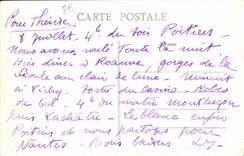 86
Pour Thérèse
CARTE POSTALE
8 juillet. 4h du soir Poitiers
Nous avons roulé toute la nuit
Hier dîner à Roanne, gorges de la
Sioule au clair de lune - Minuit
à Vichy. Sortie du Casino - Robes
de bal - 4h du matin Montluçon
puis La Châtre - le Blanc enfin
Poitiers et nous partons pour
Nantes. Bons baisers